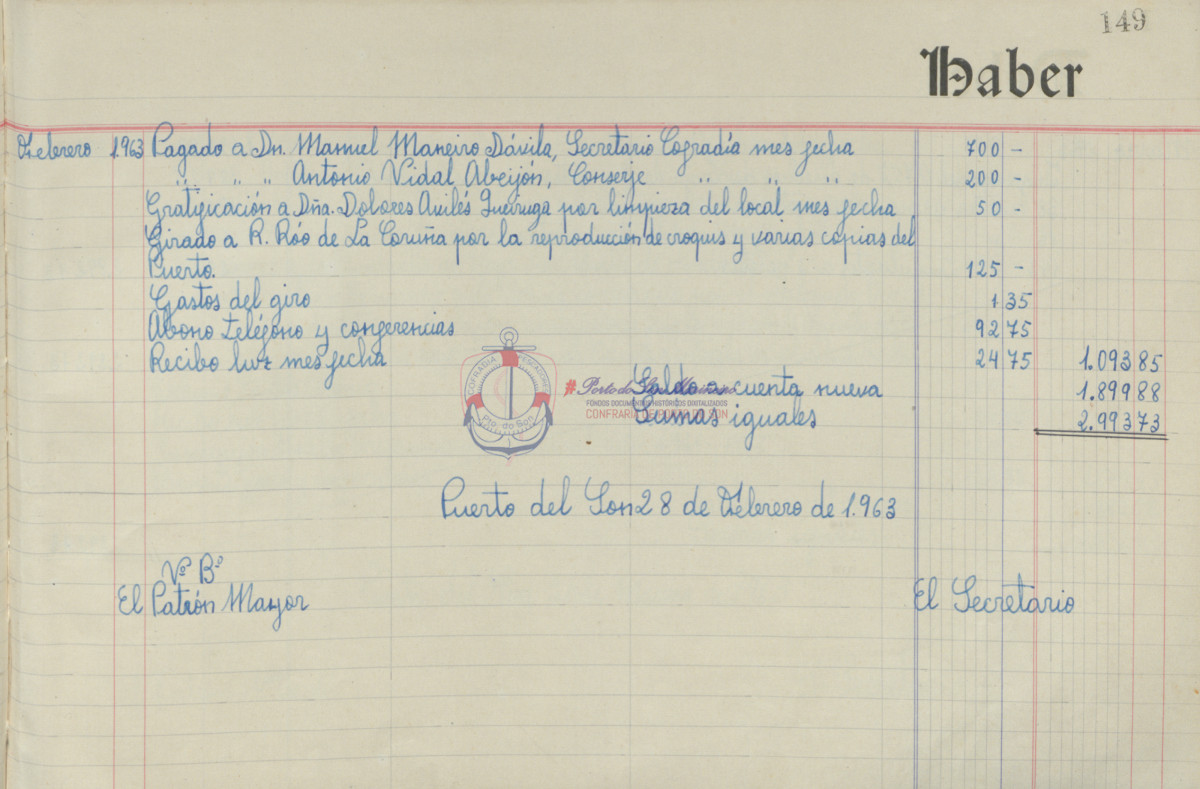 149
Haber
Febrero 1.963 Pagado a Dn. Manuel Maneiro Dávila, Secretario Cofradía mes fecha 700 -
" " " Antonio Vidal Abeijón, Conserje " " " 200 -
Gratificación a Dña. Dolores Avilés Queiruga por limpieza del local mes fecha 50 -
Girado a R. Róo de La Coruña por la reproducción de croquis y varias copias del
Puerto. 125 -
Gastos del giro 1 35
Abono teléfono y conferencias 92 75
Recibo luz mes fecha 24 75 1.093 85
Saldo a cuenta nueva 1.899 88
Sumas iguales 2.993 73
COFRADIA PESCADORES
Pto. do Son
#Porto do Son
FONDOS DOCUMENTAIS HISTÓRICOS DIXITALIZADOS
CONFRARÍA DE PORTO DO SON
Puerto del Son 28 de Febrero de 1.963
Vº Bº
El Patrón Mayor El Secretario